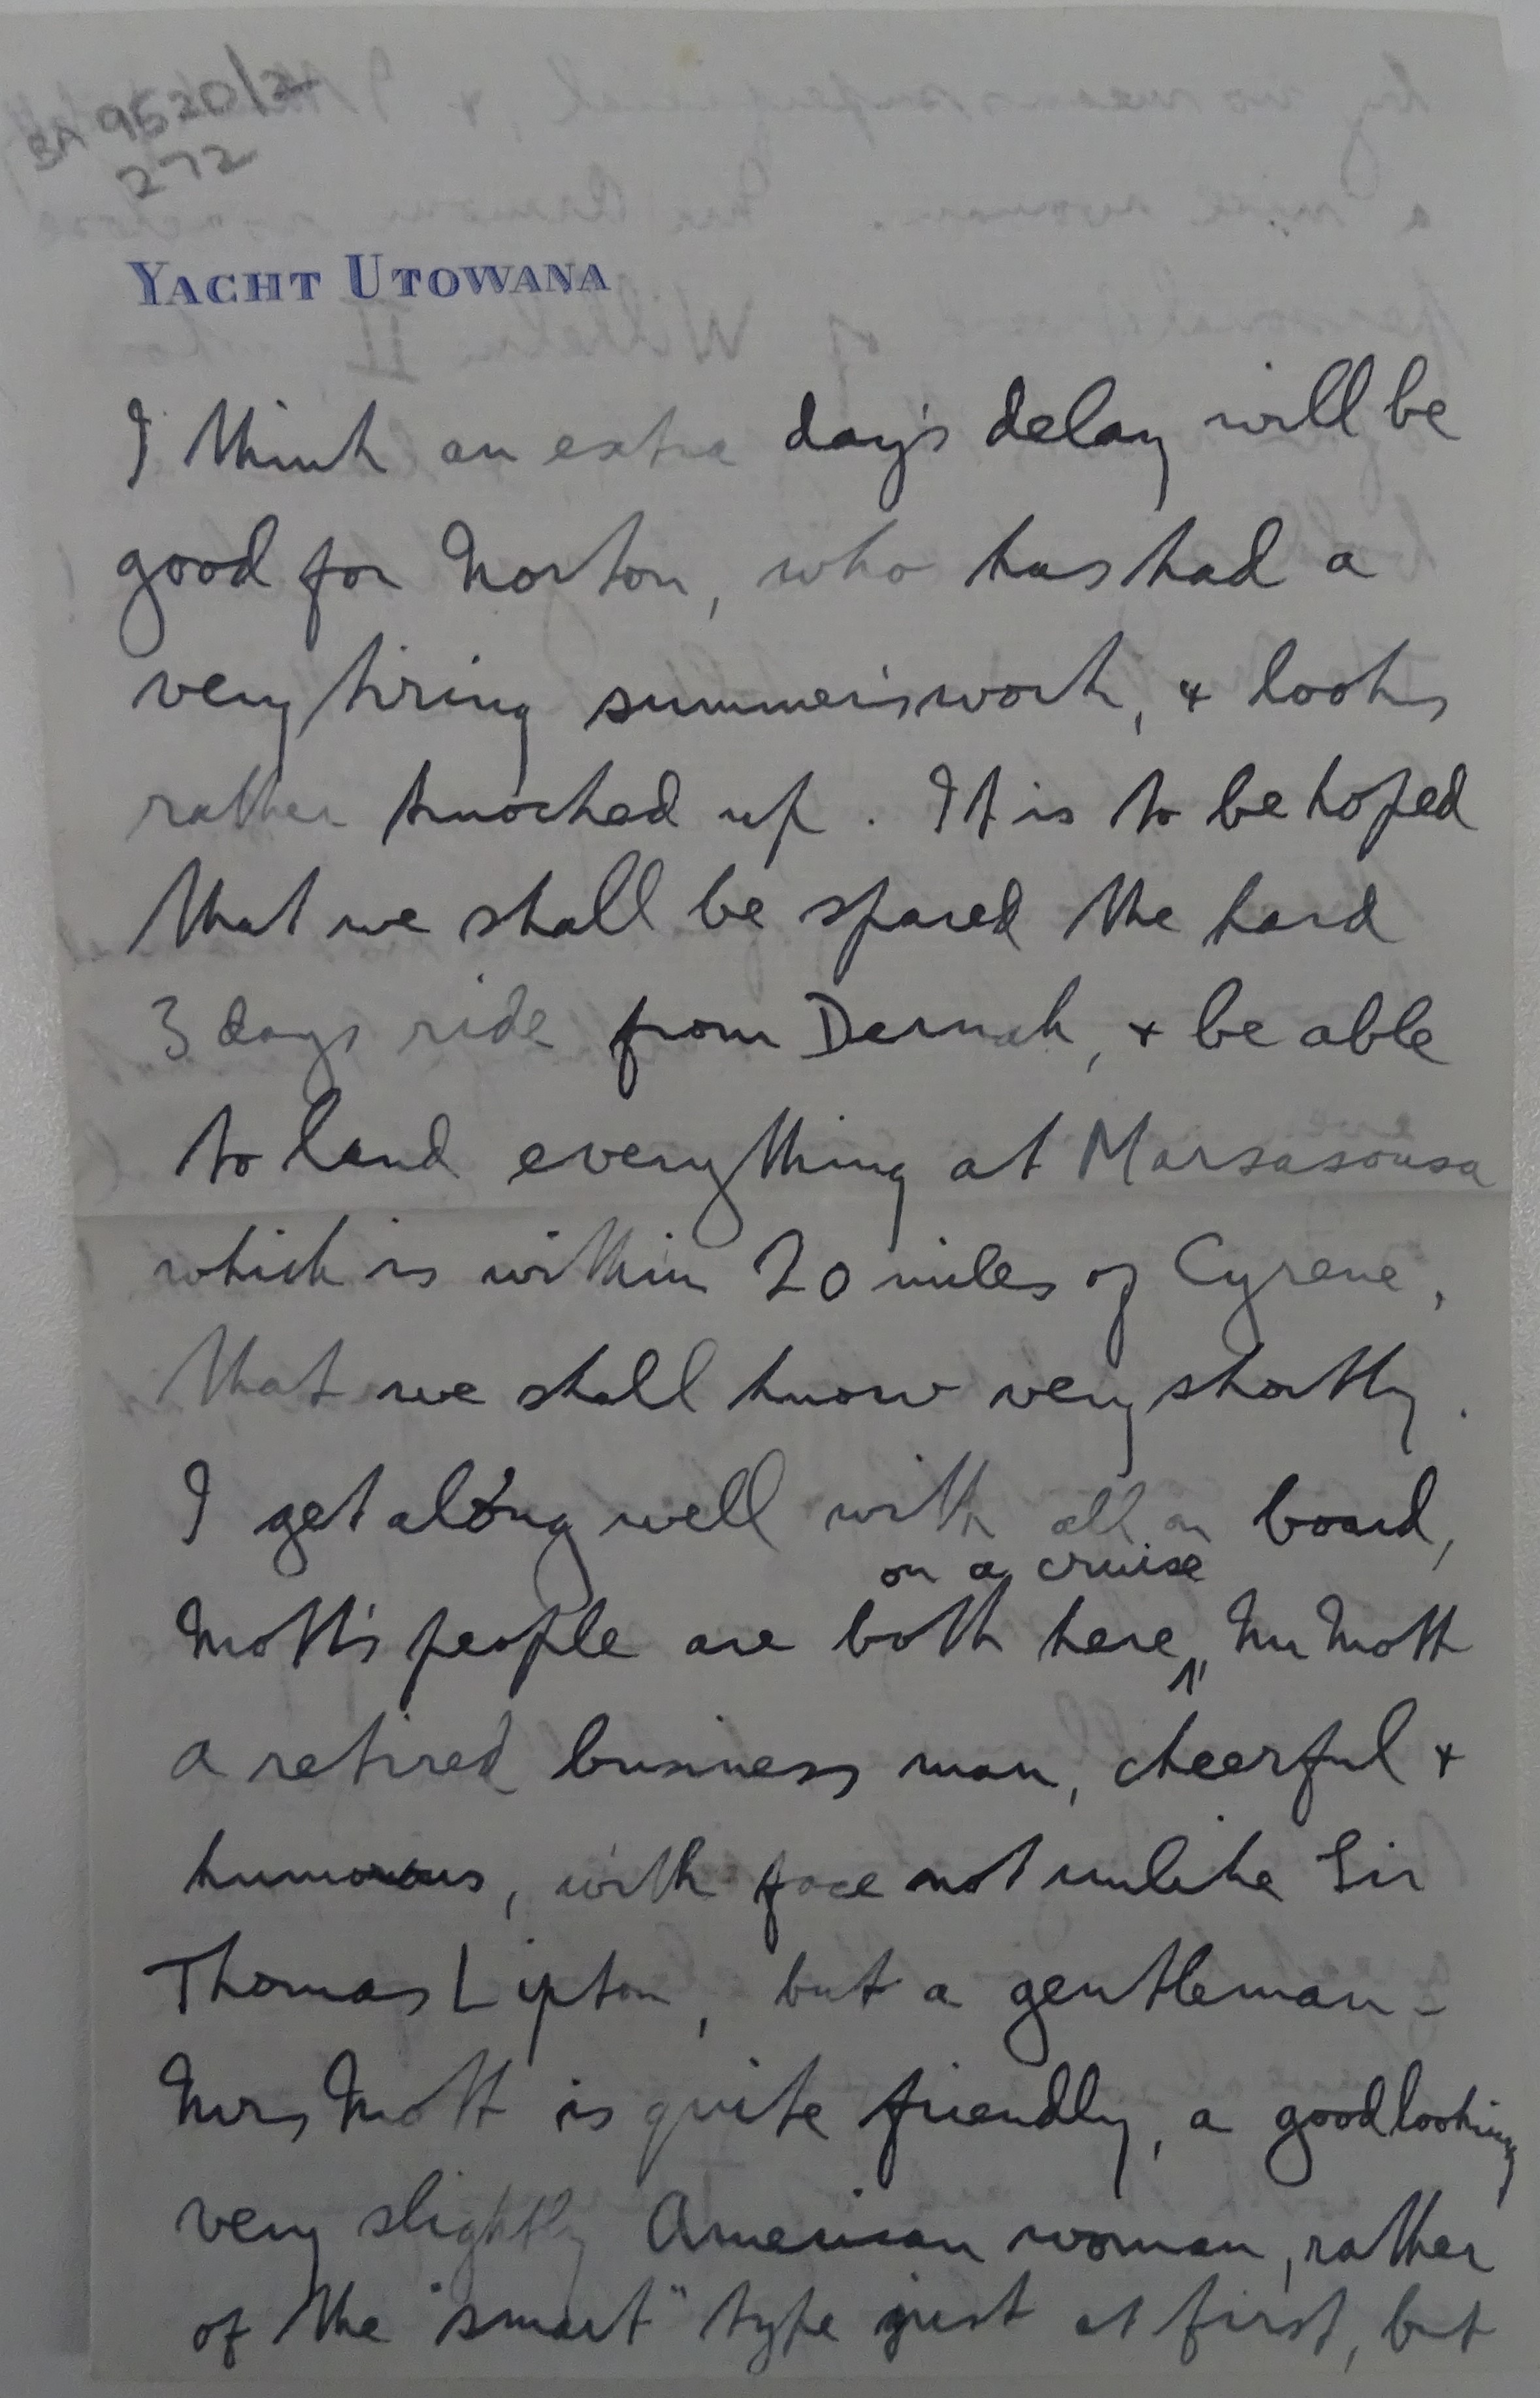 BA 9520/2
272
YACHT UTOWANA
I think an extra day's delay will be
good for Norton, who has had a
very tiring summer's work, & looks
rather knocked up. It is to be hoped
that we shall be spared the hard
3 days ride from Dernah, & be able
to land everything at Marsasousa
which is within 20 miles of Cyrene,
that we shall know very shortly.
I get along well with all on board,
on a cruise
Mott's people are both here, Mr Mott
a retired business man, cheerful &
humorous, with face not unlike Sir
Thomas Lipton, but a gentleman -
Mrs Mott is quite friendly, a goodlooking
very slightly American woman, rather
of the "smart" type just at first, but